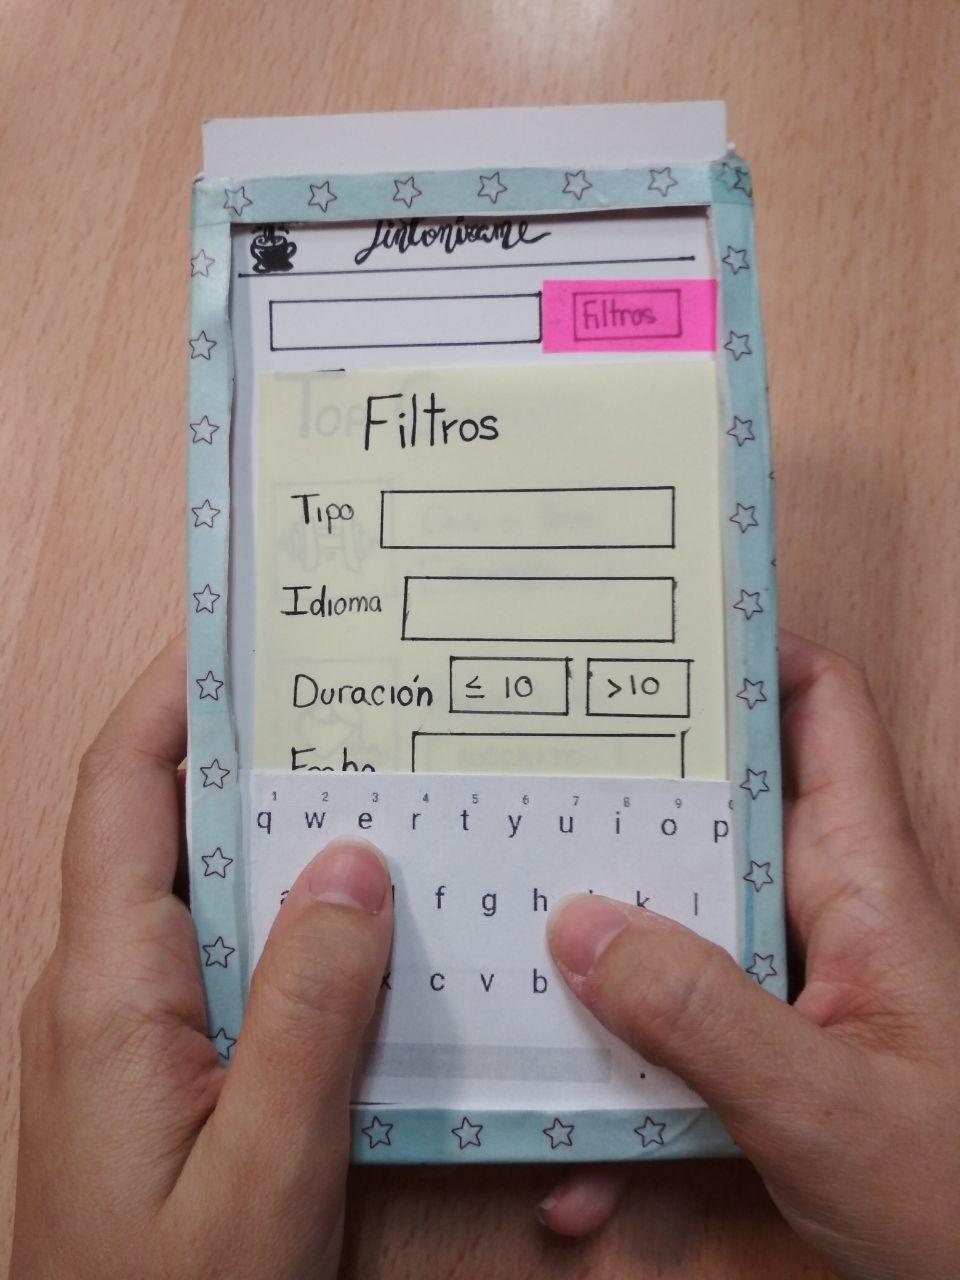 Sintonízame
Filtros
Filtros
Tipo
Idioma
Duración ≤ 10 >10
Fecha
1 2 3 4 5 6 7 8 9
q w e r t y u i o p
f g h k l
x c v b
.